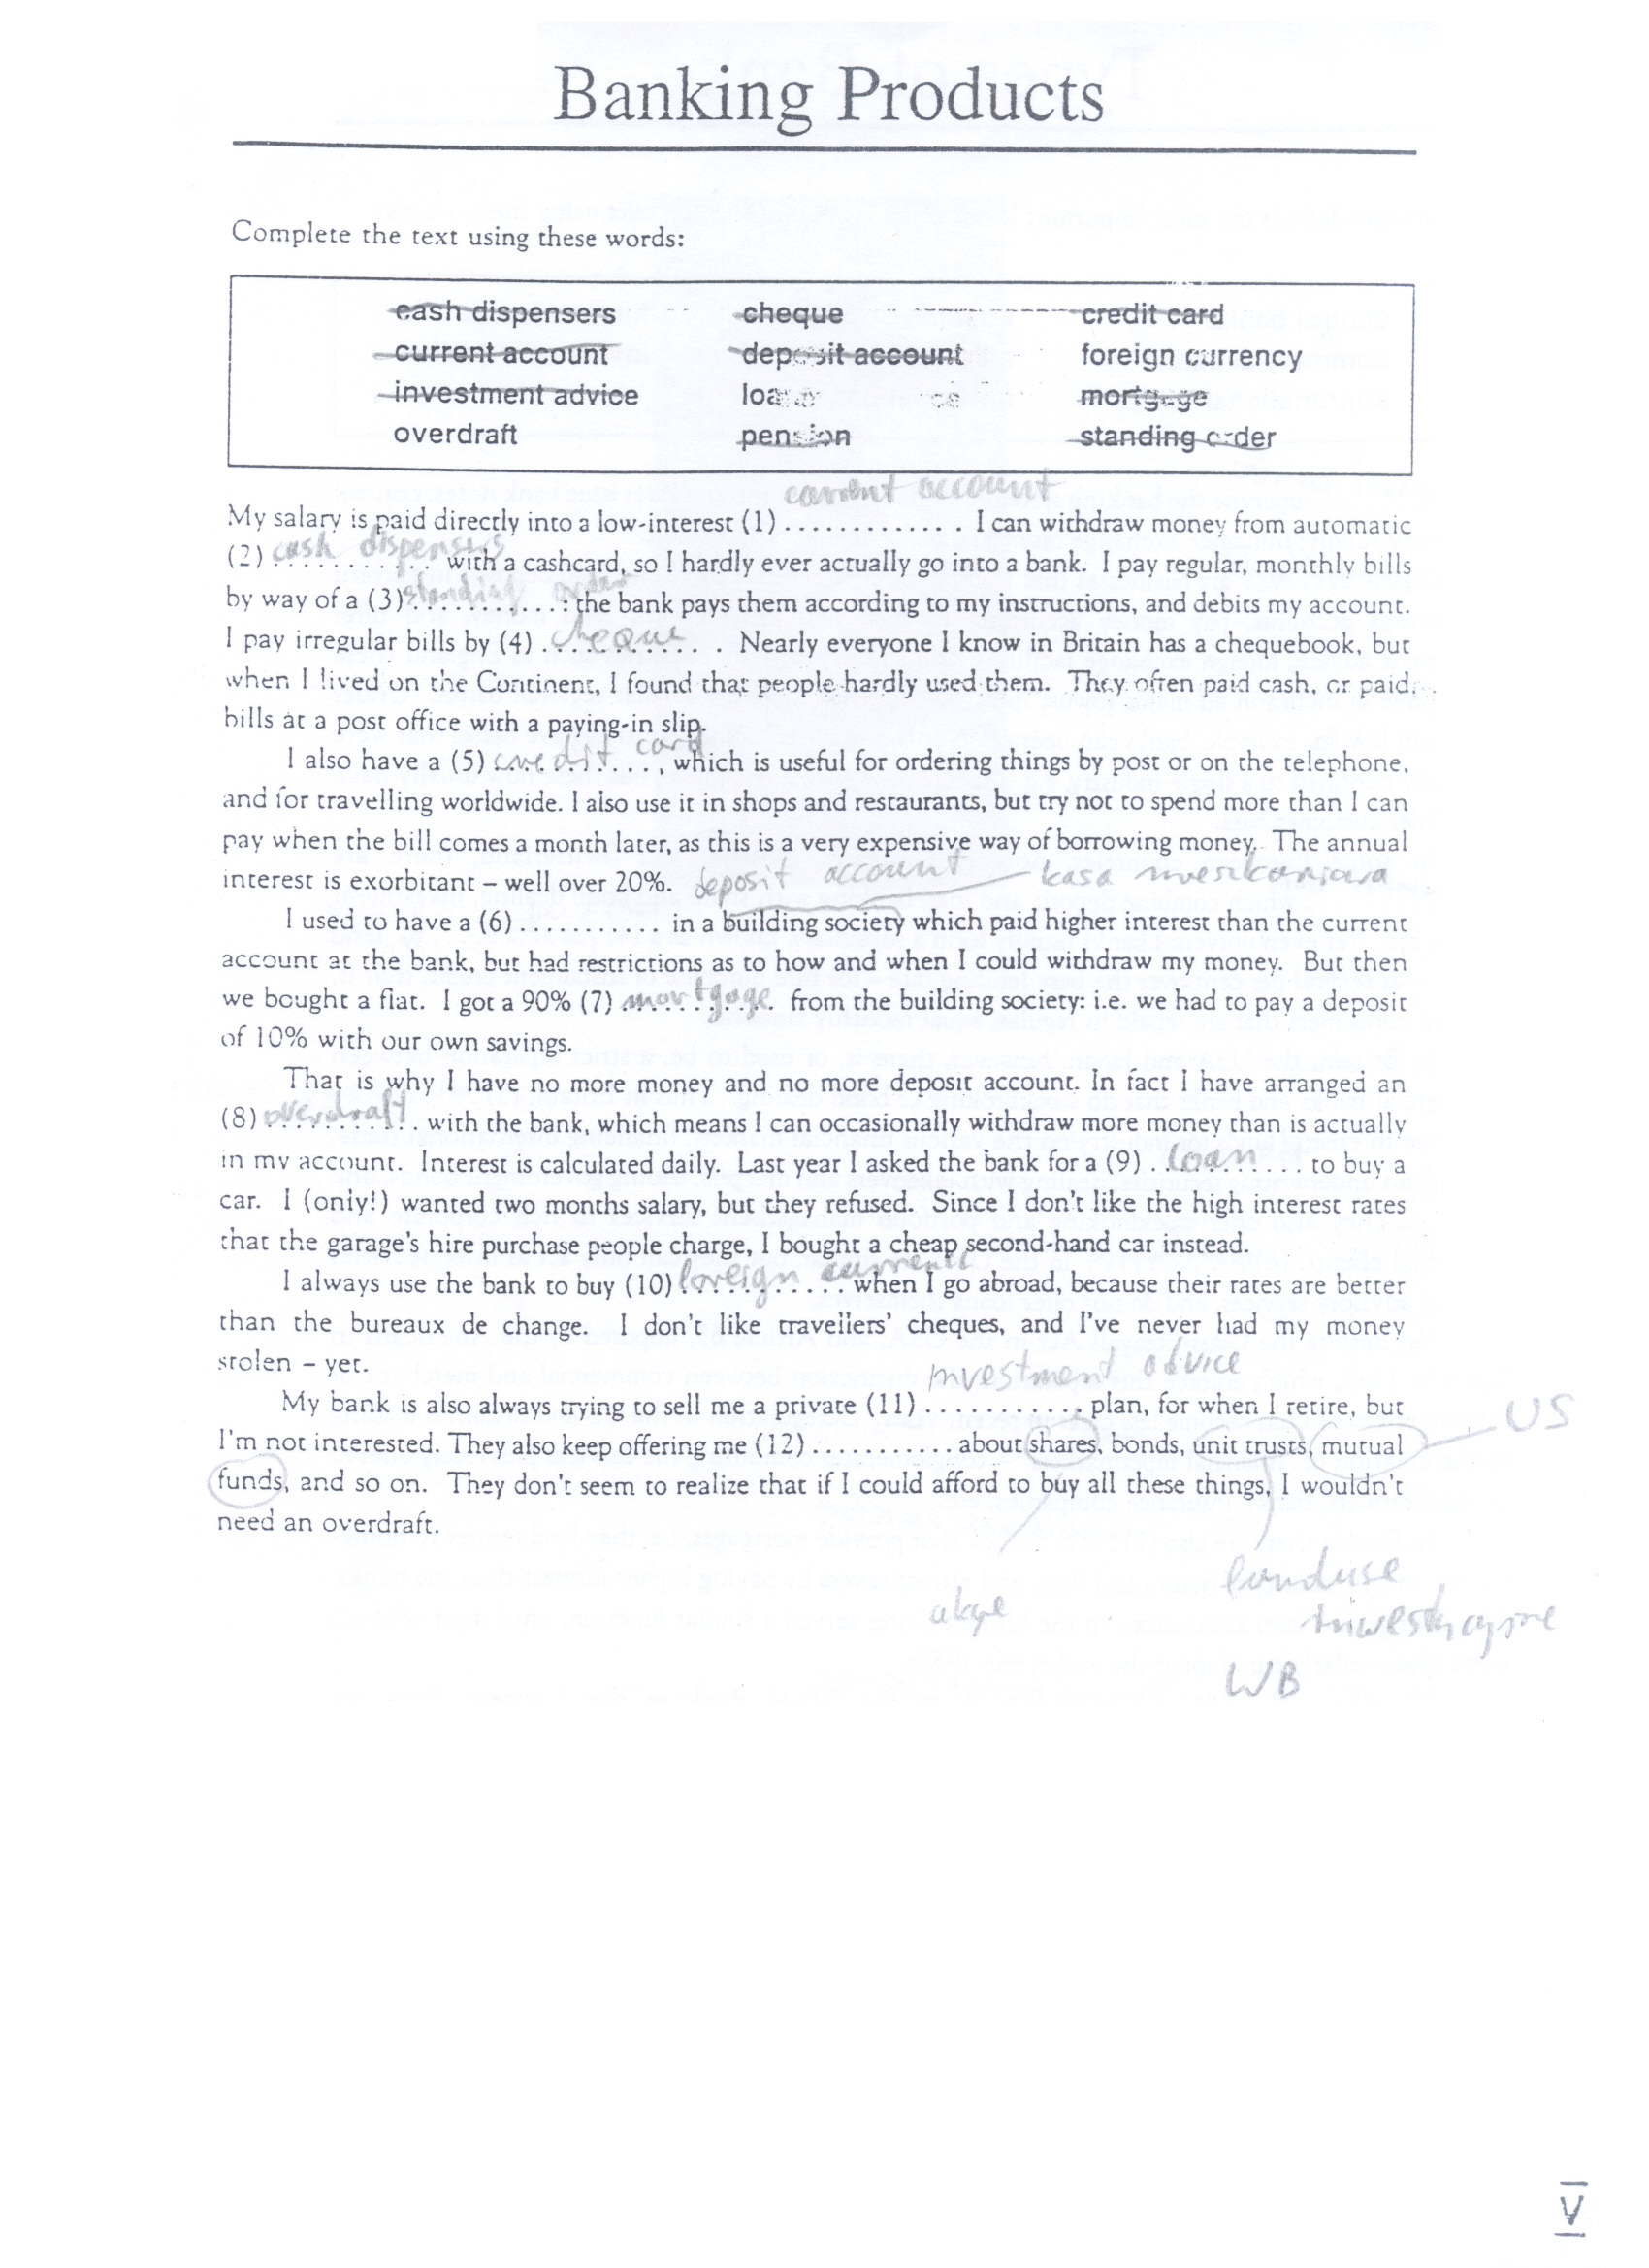 Banking Products
Complete the text using these words:
cash dispensers cheque credit card
current account deposit account foreign currency
investment advice loan mortgage
overdraft pension standing order
current account
My salary is paid directly into a low-interest (1) ............. I can withdraw money from automatic
(2) cash dispensers with a cashcard, so I hardly ever actually go into a bank. I pay regular, monthly bills
by way of a (3) standing order : the bank pays them according to my instructions, and debits my account.
I pay irregular bills by (4) cheque . Nearly everyone I know in Britain has a chequebook, but
when I lived on the Continent, I found that people hardly used them. They often paid cash, or paid
bills at a post office with a paying-in slip.
I also have a (5) credit card, which is useful for ordering things by post or on the telephone,
and for travelling worldwide. I also use it in shops and restaurants, but try not to spend more than I can
pay when the bill comes a month later, as this is a very expensive way of borrowing money. The annual
interest is exorbitant – well over 20%. deposit account kasa mieszkaniowa
I used to have a (6) ........... in a building society which paid higher interest than the current
account at the bank, but had restrictions as to how and when I could withdraw my money. But then
we bought a flat. I got a 90% (7) mortgage from the building society: i.e. we had to pay a deposit
of 10% with our own savings.
That is why I have no more money and no more deposit account. In fact I have arranged an
(8) overdraft with the bank, which means I can occasionally withdraw more money than is actually
in my account. Interest is calculated daily. Last year I asked the bank for a (9) loan to buy a
car. I (only!) wanted two months salary, but they refused. Since I don't like the high interest rates
that the garage's hire purchase people charge, I bought a cheap second-hand car instead.
I always use the bank to buy (10) foreign when I go abroad, because their rates are better
than the bureaux de change. I don't like travellers' cheques, and I've never had my money
stolen – yet.
investment advice
My bank is also always trying to sell me a private (11) ........... plan, for when I retire, but
I'm not interested. They also keep offering me (12) ........... about shares, bonds, unit trusts, mutual US
funds, and so on. They don't seem to realize that if I could afford to buy all these things, I wouldn't
need an overdraft.
akcje
WB
V